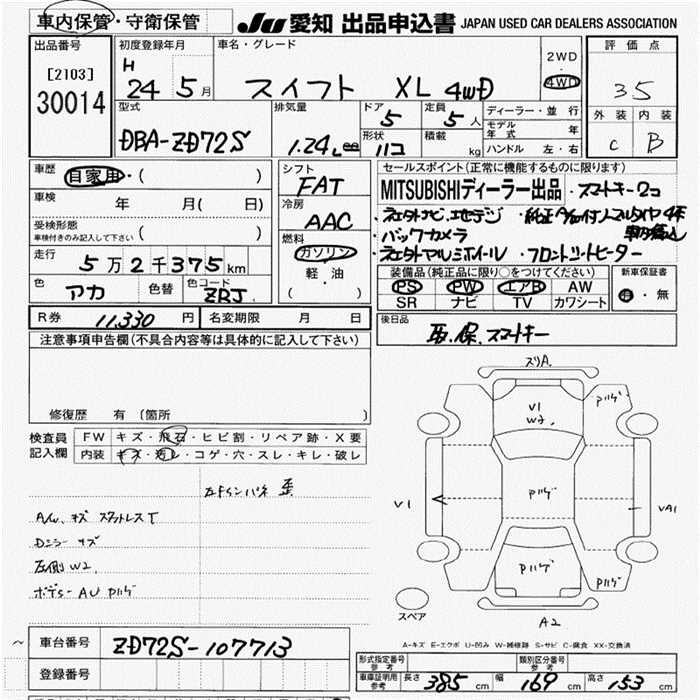 車内保管・守衛保管 JU 愛知 出品申込書 JAPAN USED CAR DEALERS ASSOCIATION
出品番号 初度登録年月 車名・グレード 2WD 4WD 評価点
[2103] H 24 5月 スイフト XL 4WD 35
30014
型式 排気量 ドア 定員 ディーラー・並行 外装 内装
DBA-ZD72S 1.24L 5 5人 モデル年式 年 C B
形状 積載 ハンドル 左・右
kg
車歴 自家用・( ) シフト セールスポイント(正常に機能するものに限ります)
FAT MITSUBISHIディーラー出品 ・スマートキー2コ
車検 年 月( 日) 冷房
AAC
受検形態 ( )
車検付きのみ記入して下さい
燃料 ・バックカメラ
走行 5万2千375km ガソリン ・フロントシートヒーター
色 アカ 色替 色コード ZRJ 軽・油
( )
装備品(純正品に限り○をつけてください) 新車保証書
PS PW エアB AW 有・無
SR ナビ TV カワシート
R券 11,330円 名変期限 月 日 後日品
取.保.スマートキー
注意事項申告欄(不具合内容等は具体的に記入して下さい)
修復歴 有 (箇所 )
検査員 FW キズ・飛石・ヒビ割・リペア跡・X要
記入欄 内装 キズ・汚レ・コゲ・穴・スレ・キレ・破レ
A/W キズ スタットレスT
Dミラー キズ
左側 W2
ズリA.
V1
W2
V1
VA1
A2
スペア
A-キズ E-エクボ U-凹み W-補修跡 S-サビ C-腐食 XX-交換済
車台番号 ZD72S-107713
登録番号
形式指定番号 参考 類別区分番号 参考
車庫証明用 参考 長さ 385cm 幅 169cm 高さ 153cm